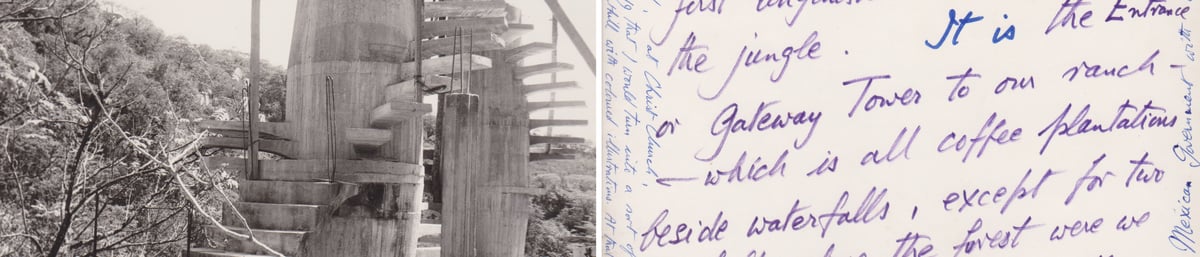 first
the jungle. It is the Entrance
or Gateway Tower to our ranch –
– which is all coffee plantations
beside waterfalls, except for two
the forest were we
at Christ Church,
that I would turn into a sort of
Hall with coloured illustrations. At that
Mexican Government with